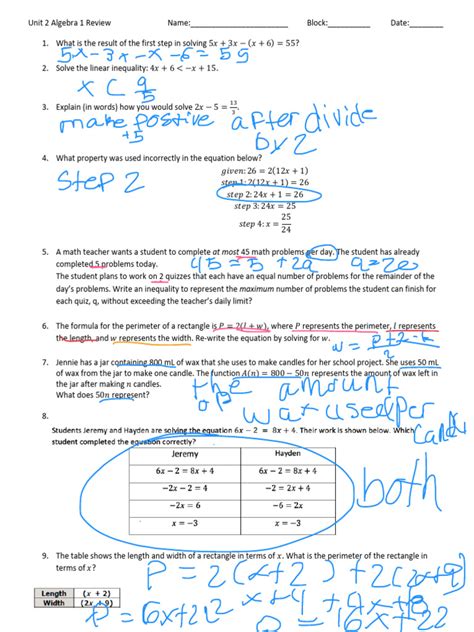 Unit 2 Algebra 1 Review Name:____________________ Block:__________ Date:________
1. What is the result of the first step in solving 5x + 3x − (x + 6) = 55?
2. Solve the linear inequality: 4x + 6 < −x + 15.
x < 9/5
3. Explain (in words) how you would solve 2x − 5 = 13/3.
make postive after divide
+5 by 2
4. What property was used incorrectly in the equation below?
Step 2
given: 26 = 2(12x + 1)
step 1: 2(12x + 1) = 26
step 2: 24x + 1 = 26
step 3: 24x = 25
step 4: x = 25/24
5. A math teacher wants a student to complete at most 45 math problems per day. The student has already
completed 5 problems today.
45 = 5 + 2q
The student plans to work on 2 quizzes that each have an equal number of problems for the remainder of the
day's problems. Write an inequality to represent the maximum number of problems the student can finish for
each quiz, q, without exceeding the teacher's daily limit?
6. The formula for the perimeter of a rectangle is P = 2(l + w), where P represents the perimeter, l represents
the length, and w represents the width. Re-write the equation by solving for w.
7. Jennie has a jar containing 800 mL of wax that she uses to make candles for her school project. She uses 50 mL
of wax from the jar to make one candle. The function A(n) = 800 − 50n represents the amount of wax left in
the jar after making n candles.
What does 50n represent?
the amount
of wax used per
candle
8.
Students Jeremy and Hayden are solving the equation 6x − 2 = 8x + 4. Their work is shown below. Which
student completed the equation correctly?
Jeremy Hayden
6x − 2 = 8x + 4 6x − 2 = 8x + 4
−2x − 2 = 4 −2 = 2x + 4
−2x = 6 −6 = 2x
x = −3 x = −3
both
9. The table shows the length and width of a rectangle in terms of x. What is the perimeter of the rectangle in
terms of x?
P = 2(x+2) + 2(2x+9)
Length (x + 2)
Width (2x + 9)